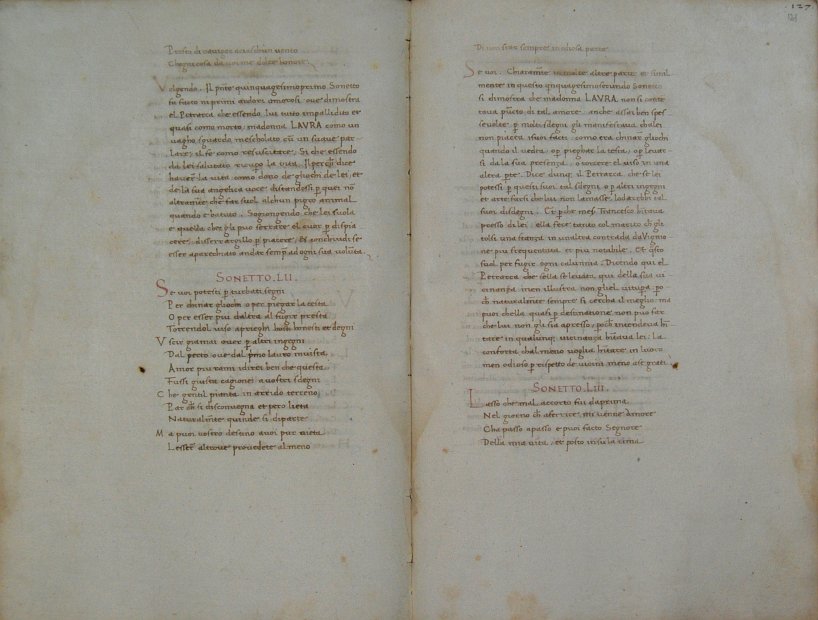 Presti di navigar a ciaschun vento
Ch ogni cosa da voi me dolce honore
Volgendo. Il pnte quinquagesimoprimo Sonetto
fu facto ni primi andori amorosi oue dimostra
el Petrarca che essendo lui tuto impallidito et
quasi como morto, madonna LAVRA como un
uagho sguardo mescholato cu un suaue par
lare, il fe como resuscitare. Si che essendo
da lei salutato
hauer la uita como dono de gliochi de lei, et
de la sua angelica uoce
altramente che far suol alchun pigro animal
quando e batuto. Sogiongendo che lei suola
e quella che gli puo serrare el cuor p dispia
cere, disserrargillo p piacere. Et conchiudi se
esser aparechiato andare semp ad ogni sua volunta.
SONETTO. LII.
Se voi potesti p turbati segni
Per chinar gliochi o per piegar la testa
O per esser piu daltra al fugir presta
Torcendol uiso a prieghi honesti et degni
Vscir giamai ouer p altri ingegni
Dal pecto oue dal pmo lauro inuesta
Amor piu rami i direi ben che questa
Fussi giusta cagione a uostri sdegni
Che gentil pianta in arrido terreno
Par ch si disconuegna et pero lieta
Naturalmente quinde si diparte
Ma poi vostro destino a uoi pur uieta
Lesser altroue prouedete al meno
127
Di non star sempre in odiosa parte
Se voi. Chiaramte in molte altre parti et simil
mente in questo quinquagesimosecundo Sonetto
si dimostra che madonna LAVRA non si conte
taua
se uolte p molti sdegni gli manifestaua cha lei
non piacea
quando il uedea, op pieghar la testa, op leuar
si da la sua presenza, o torcere el uiso in una
altra pte. Dice dunq il Petrarca che se lei
potessi p questi suoi tal sdegni, op altri ingegni
et arte farsi che lui non lamasse, lodarebbi tal
suoi disdegni. Et pche meser Francesco
presso di lei ella fece tanto col marito ch gli
tolsi una stanza in unaltra contrada da Vignio
ne piu frequentata et piu notabile. Et qsto
sual per fugir ogni calumnia. Dicendo qui el
Petrarca che sella se leuata qui della sua ui
cinanza men illustra, non gliel uitupa, po
ch naturalmente sempre si cercha il meglio, ma
puoi chella quasi p destinatione non puo far
che lui non gli sia apresso, poch intendeua hi
tare in qualunq; uicinanza hitaua lei. La
conforta chal meno uoglia hitare in luoco
men odioso p rispetto de uicini meno asse grati
SONETTO. LIII.
Lasso che mal accorto fui da prima
Nel giorno ch a ferir mi uenne Amore
Cha passo a passo e puoi facto Segnore
Della mia uita, et posto in su la cima